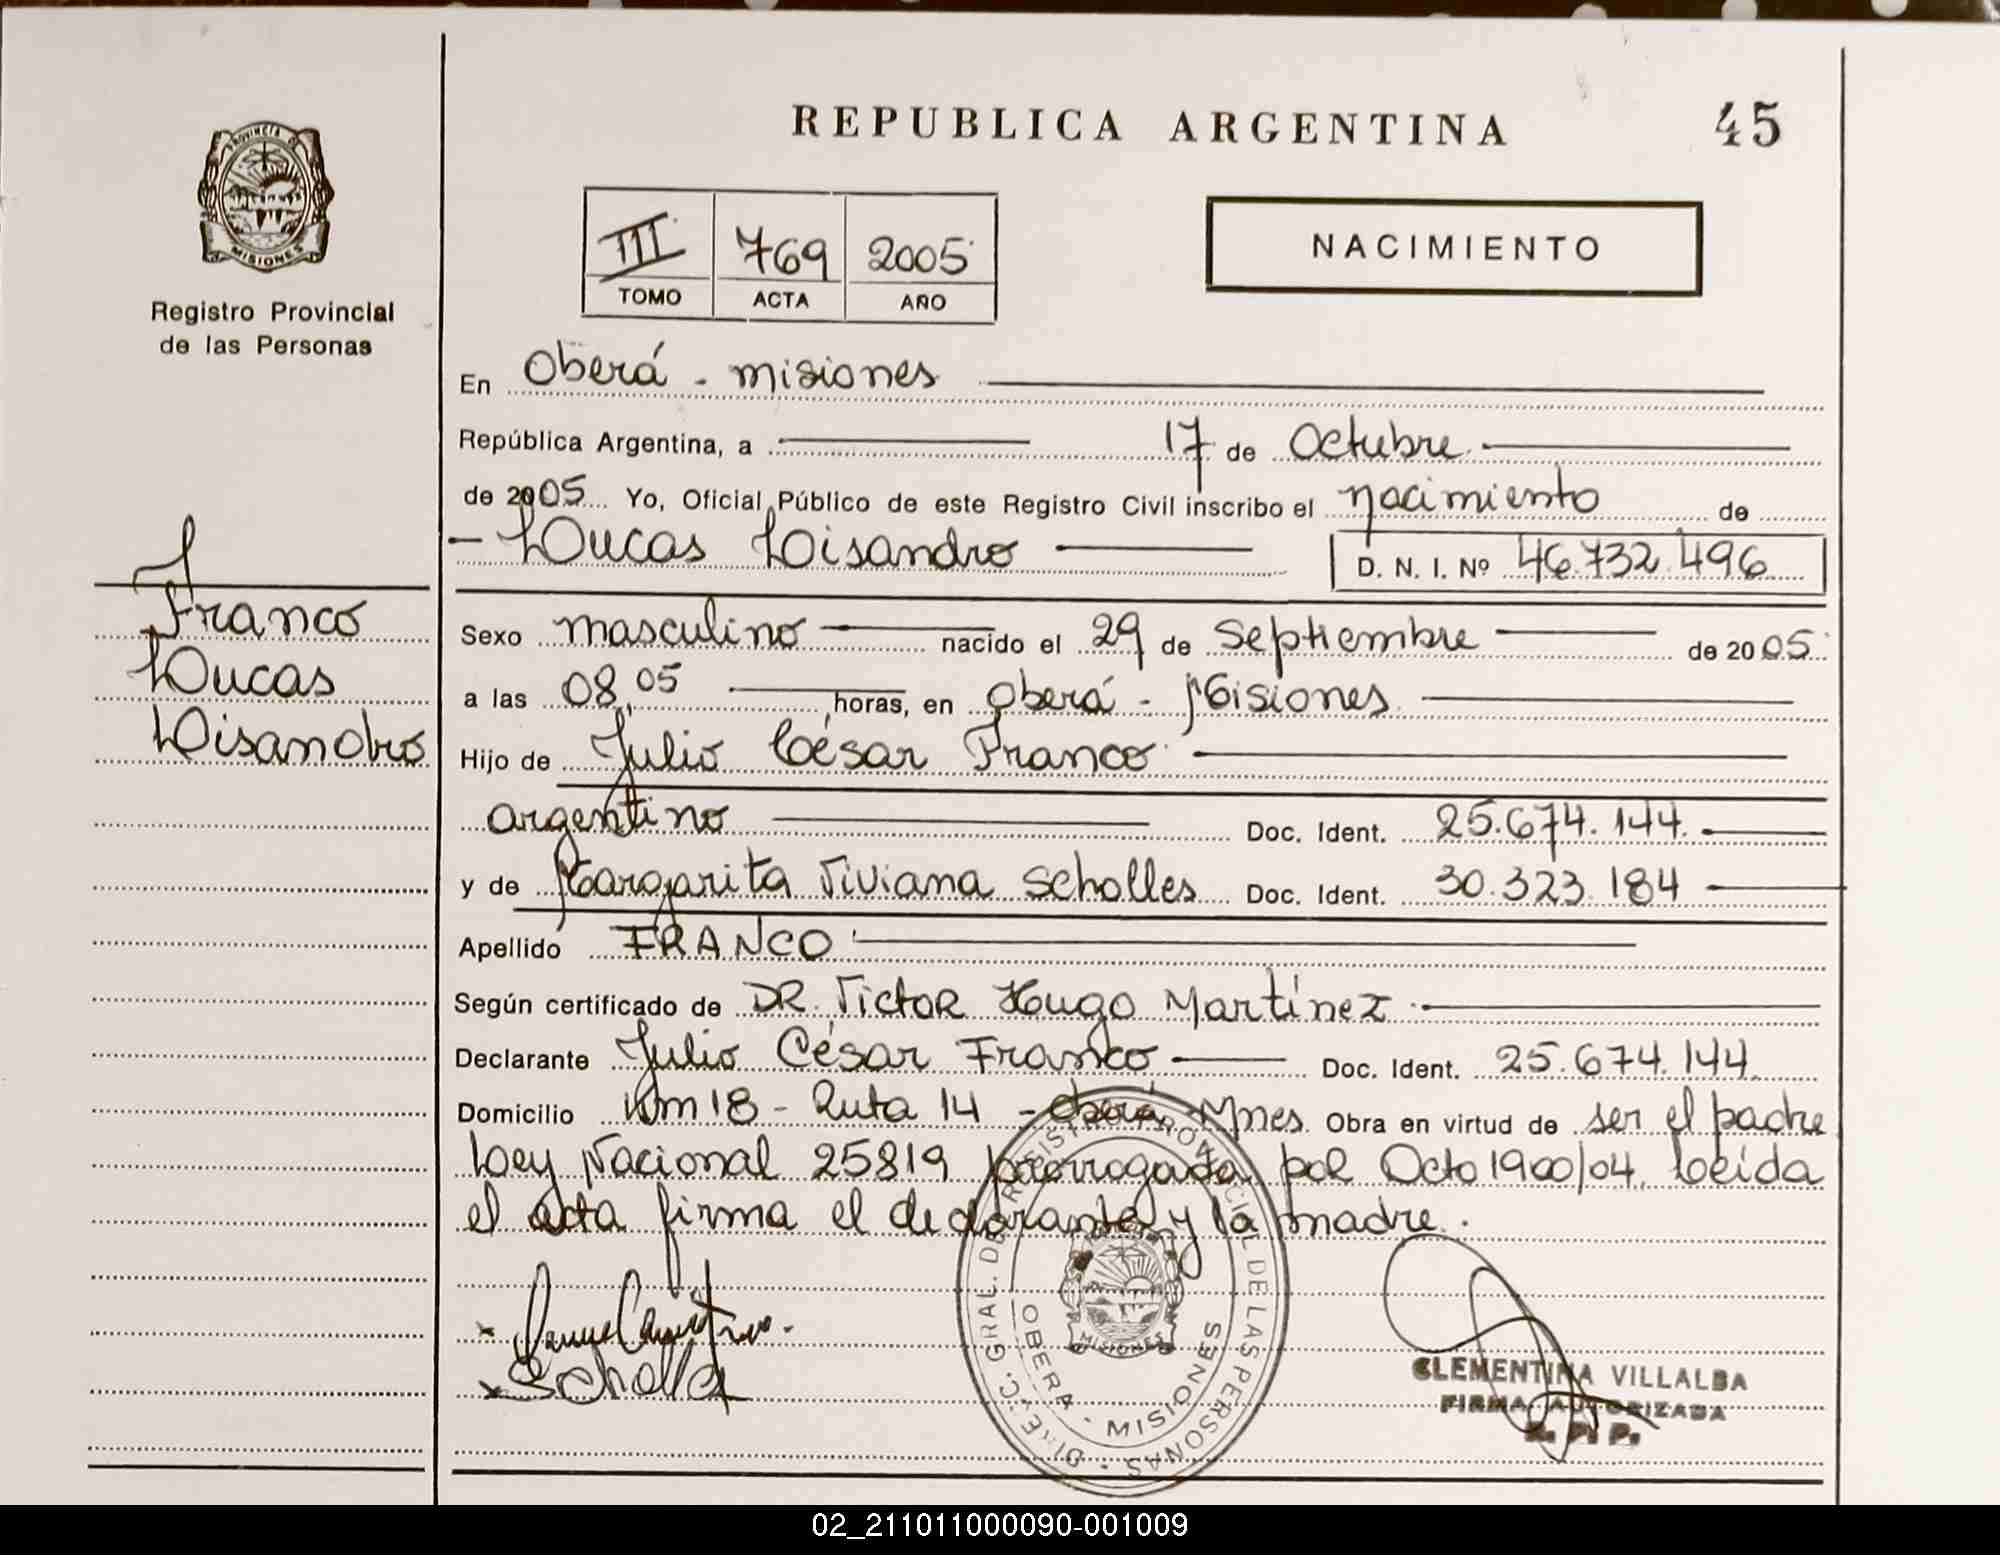 REPUBLICA ARGENTINA 45
PROVINCIA
MISIONES
Registro Provincial
de las Personas
III 769 2005
TOMO ACTA AÑO
NACIMIENTO
En Oberá - misiones
República Argentina, a 17 de Octubre
de 2005 Yo, Oficial Público de este Registro Civil inscribo el nacimiento de
- Lucas Lisandro D. N. I. Nº 46.732.496
Sexo masculino nacido el 29 de Septiembre de 2005
a las 08,05 horas, en Oberá - Misiones
Hijo de Julio César Franco
argentino Doc. Ident. 25.674.144.
y de Margarita Viviana Scholles Doc. Ident. 30.323.184
Apellido FRANCO
Según certificado de DR. Victor Hugo Martínez
Declarante Julio César Franco Doc. Ident. 25.674.144
Domicilio Km 18 - Ruta 14 - Oberá Mnes. Obra en virtud de ser el padre
Ley Nacional 25819 prorrogada por Dcto 1900/04. Leida
el acta firma el declarante y la madre.
Franco
Lucas
Lisandro
DIREC. GRAL. DE REGISTRO PROVINCIAL DE LAS PERSONAS
OBERA - MISIONES
MISIONES
CLEMENTINA VILLALBA
FIRMA AUTORIZADA
R. P. P.
02_211011000090-001009